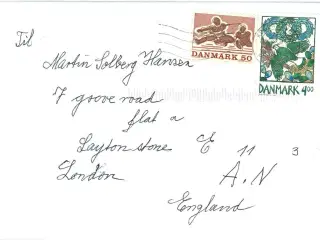 DANMARK 50
DANMARK 4.00
Til
Martin Solberg Hansen
7 grove road
flat a
Laytonstone E 11 3
London A.N
England